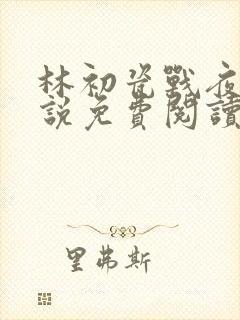 林初瓷戰夜
說免費閱讀
里弗斯